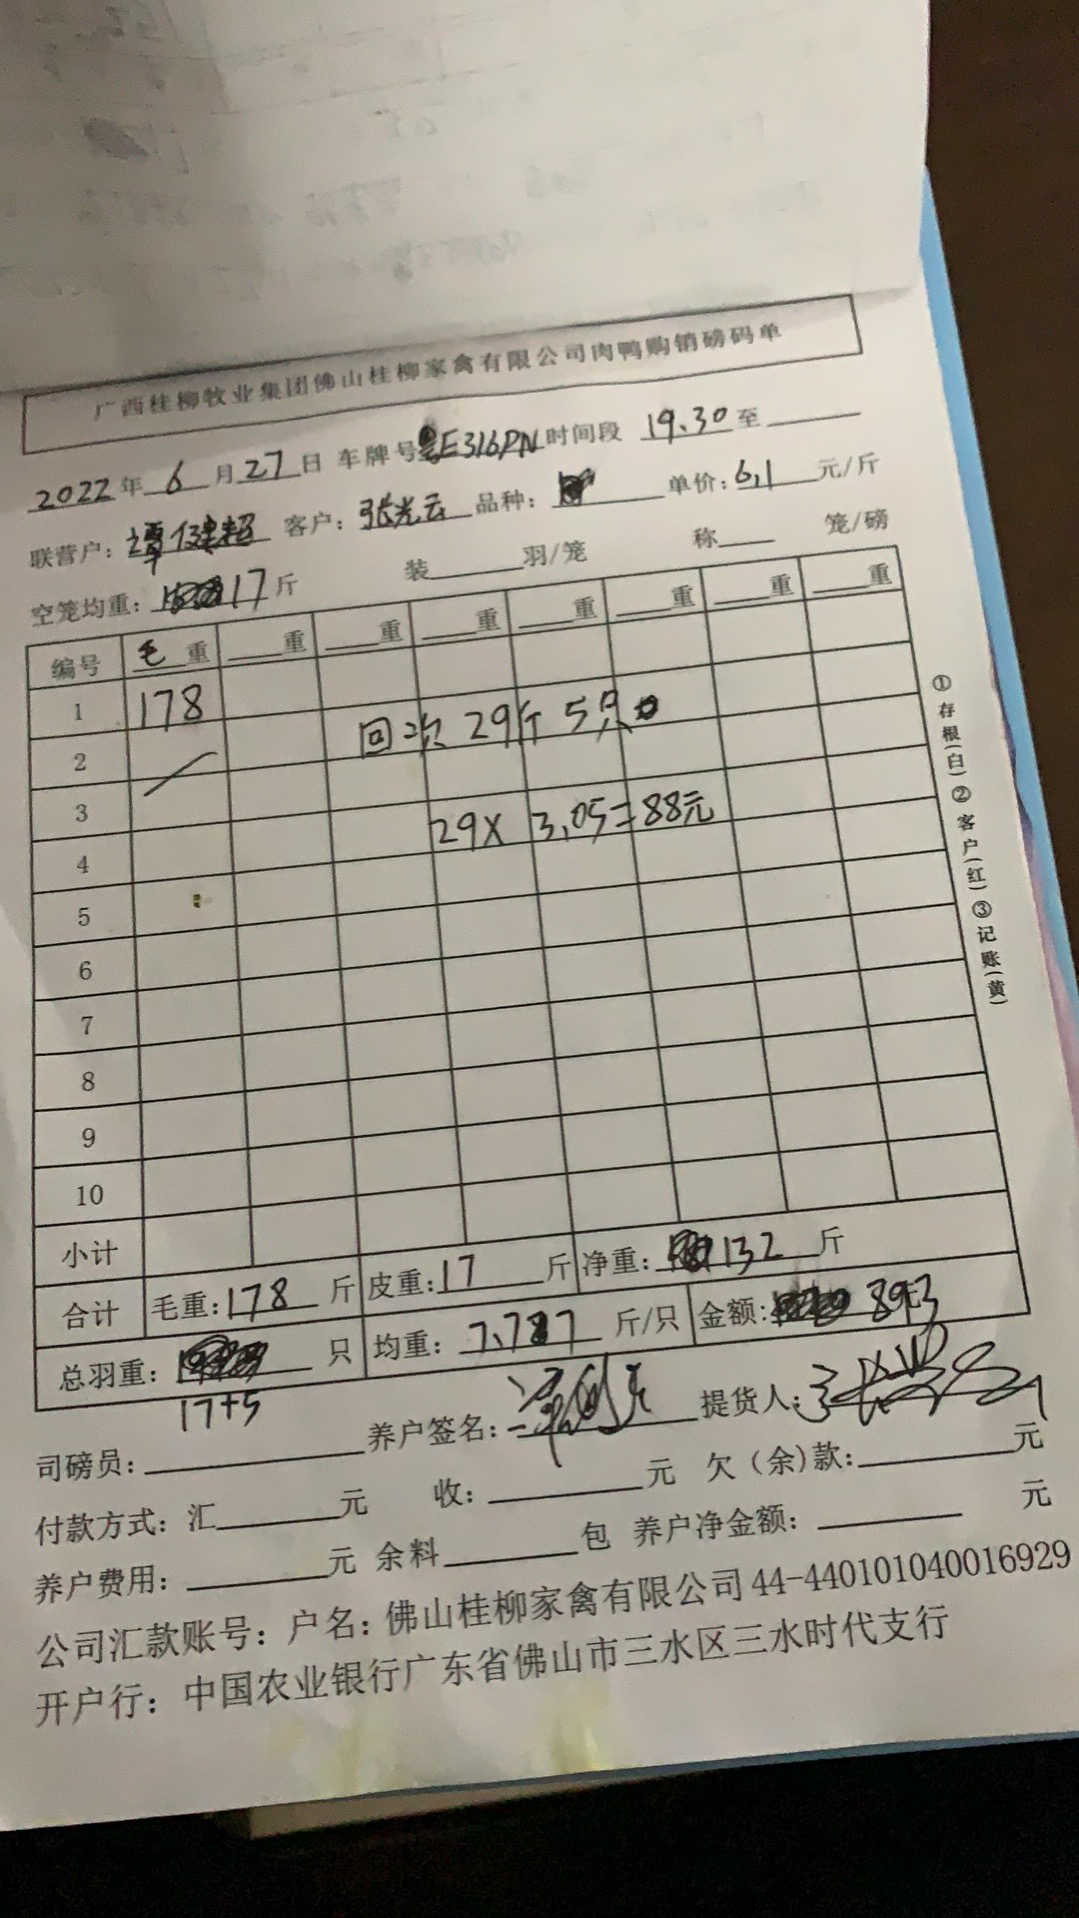 广西桂柳牧业集团佛山桂柳家禽有限公司肉鸭购销磅码单
2022年6月27日 车牌号粤E316PN时间段 19.30至
联营户：谭健超 客户：张光云 品种： 单价：6.1元/斤
空笼均重：17斤 装 羽/笼 称 笼/磅
编号 毛重 重 重 重 重 重 重 重
1 178
回次 29斤 5只
2
3
29×3.05=88元
4
5
6
7
8
9
10
小计
合计 毛重：178斤 皮重：17斤 净重：132斤
总羽重： 只 均重：7.787斤/只 金额：893
17+5
司磅员： 养户签名： 提货人：
付款方式：汇 元 收： 元 欠（余）款： 元
养户费用： 元 余料 包 养户净金额： 元
公司汇款账号：户名：佛山桂柳家禽有限公司44-440101040016929
开户行：中国农业银行广东省佛山市三水区三水时代支行
①存根（白）②客户（红）③记账（黄）